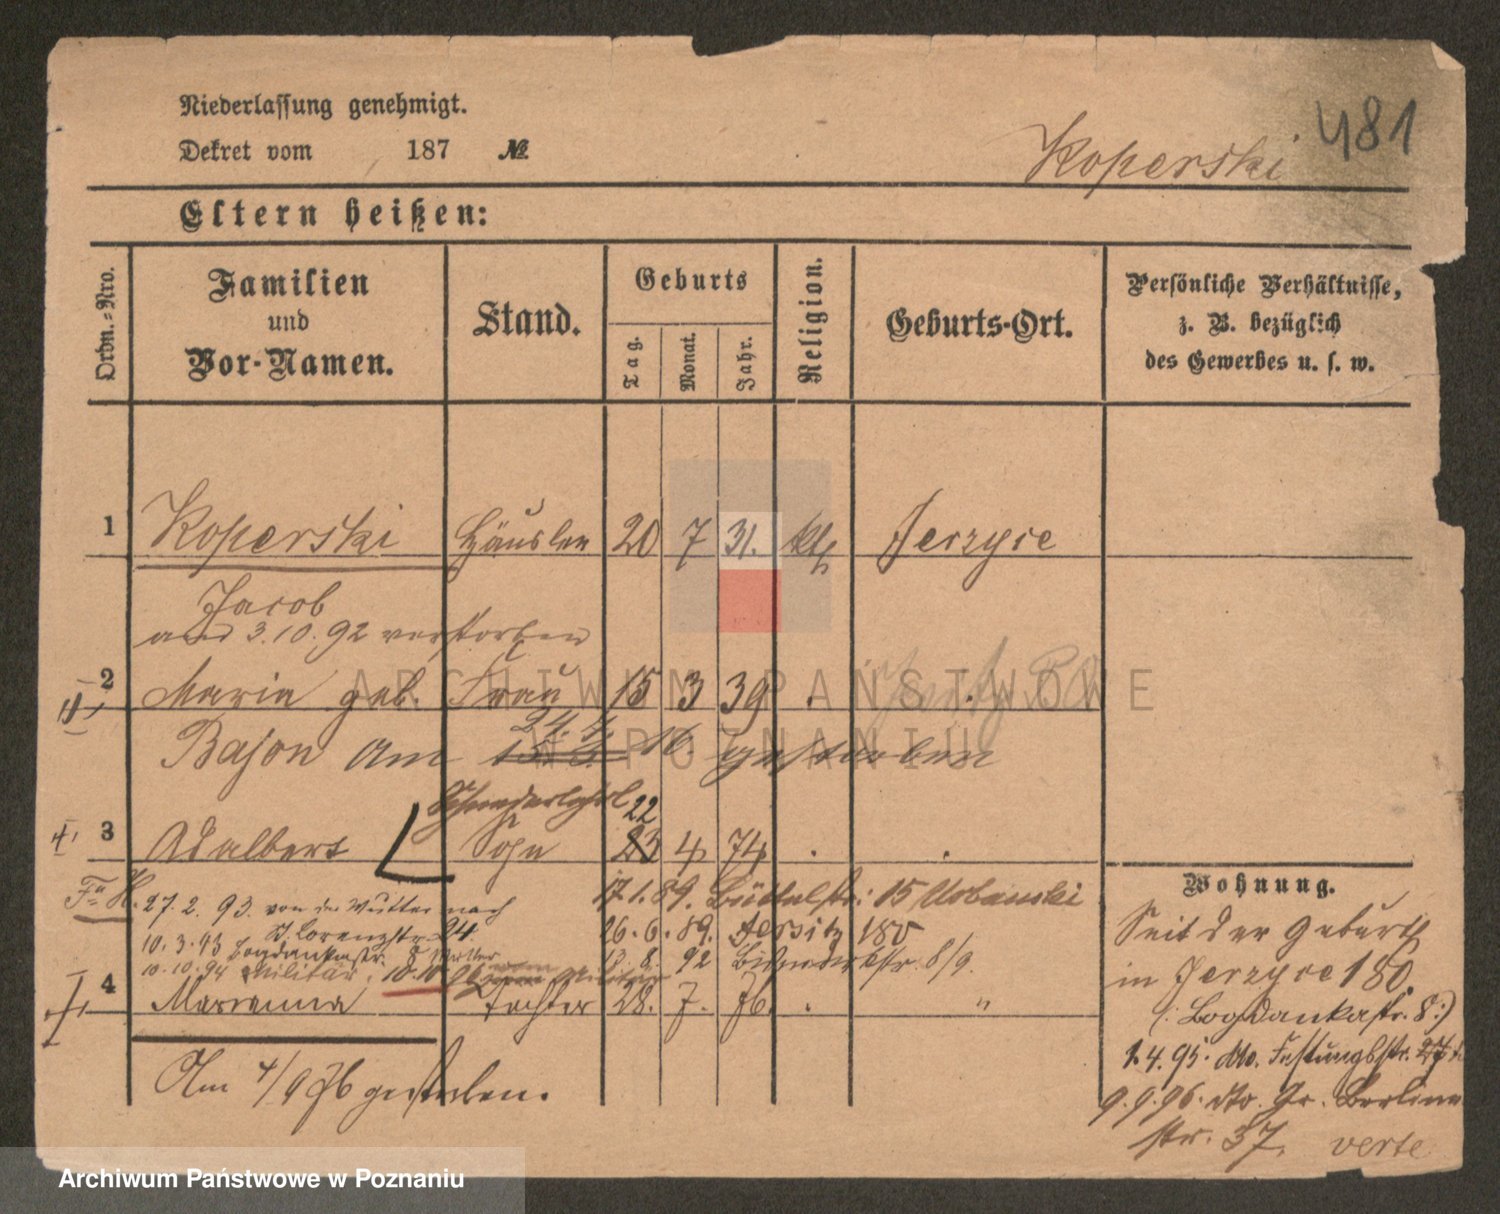 Niederlassung genehmigt.
Dekret vom 187 №
Koperski 481
Eltern heißen:
Ordn.-Nro.
Familien und Vor-Namen.
Stand.
Geburts
Tag.
Monat.
Jahr.
Religion.
Geburts-Ort.
Persönliche Verhältnisse,
z. B. bezüglich
des Gewerbes u. s. w.
1 Koperski Häusler 20 7 31. kth Jerzyce
Jacob
am 3.10.92 verstorben
2 Marie geb. Frau 15 3 39 . .
Bajon am 24.4. 16. gestorben
22
3 Adalbert Sohn 23 4 74 . .
17.1.89. Büttelstr. 15 Urbanski
27.2.93. von der Mutter nach
St. Lorenzstr. 24.
26.6.89. Jersitz 180
10.3.93 Bogdankastr. 8 Mutter
8. 92 8/9.
10.10.94 Militär. 10.10 Militär
4 Marianna Tochter 28. 7. 76. . "
Am 4/9 76 gestorben.
Wohnung.
Seit der Geburth
in Jerzyce 180.
(: Bogdankastr. 8:)
1.4.95. dto. Festungsstr. 27
9.9.96. dto. Gr. Berliner
str. 37. verte
ARCHIWUM PAŃSTWOWE
W POZNANIU
Archiwum Państwowe w Poznaniu